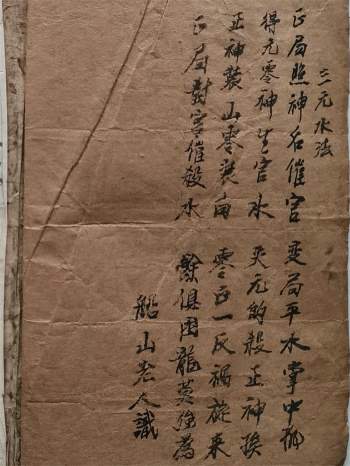 三元水法
正局照神名催官 变局平水掌中排
得元零神生官水 失元的殺正神挨
正神裝山零裝向 零正一反禍旋來
正局對宮催殺水 餘俱困龍莫強為
船山老人識